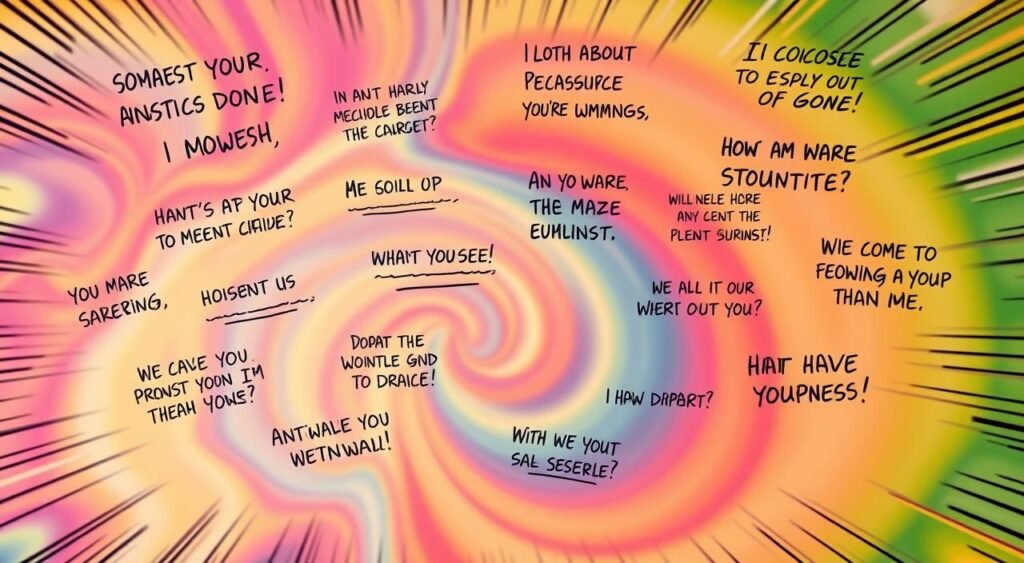 SOMAEST YOUR.
AINSTICS DONE!
I MOWESH,
IN ANT HARLY
MECIIOLE BEENT
THE CAIRGET?
I LOTH ABOUT
PECASSUPCE
YOU'RE WMMNGS,
II COICOSEE
TO ESPLY OUT
OF GONE!
HOW AM WARE
STOUNTITE?
HANT'S AP YOUR
TO MEENT CIFIIVE?
ME SOILL OP
AN YO WARE,
THE MAZE
EUHLINST.
WILL NELE HORE
ANY CENT THE
PLENT SURINS!!
WIE COME TO
FEOWING A YOUP
THAN IME,
WHAIT YOUSEE!
YOU MARE
SARERING,
HOISENT US
WE ALL IT OUR
WIERT OUT YOU?
WE CAVE YOU.
PRONST YOON IM
THEAH YOWS?
DOPAT THE
WOINTLE GND
TO DRAICE!
HAIT HAVE
YOUPNESS!
I HAW DIPART?
ANTWALE YOU
WETNWALL!
WITH WE YOUT
SAL SESERLE?